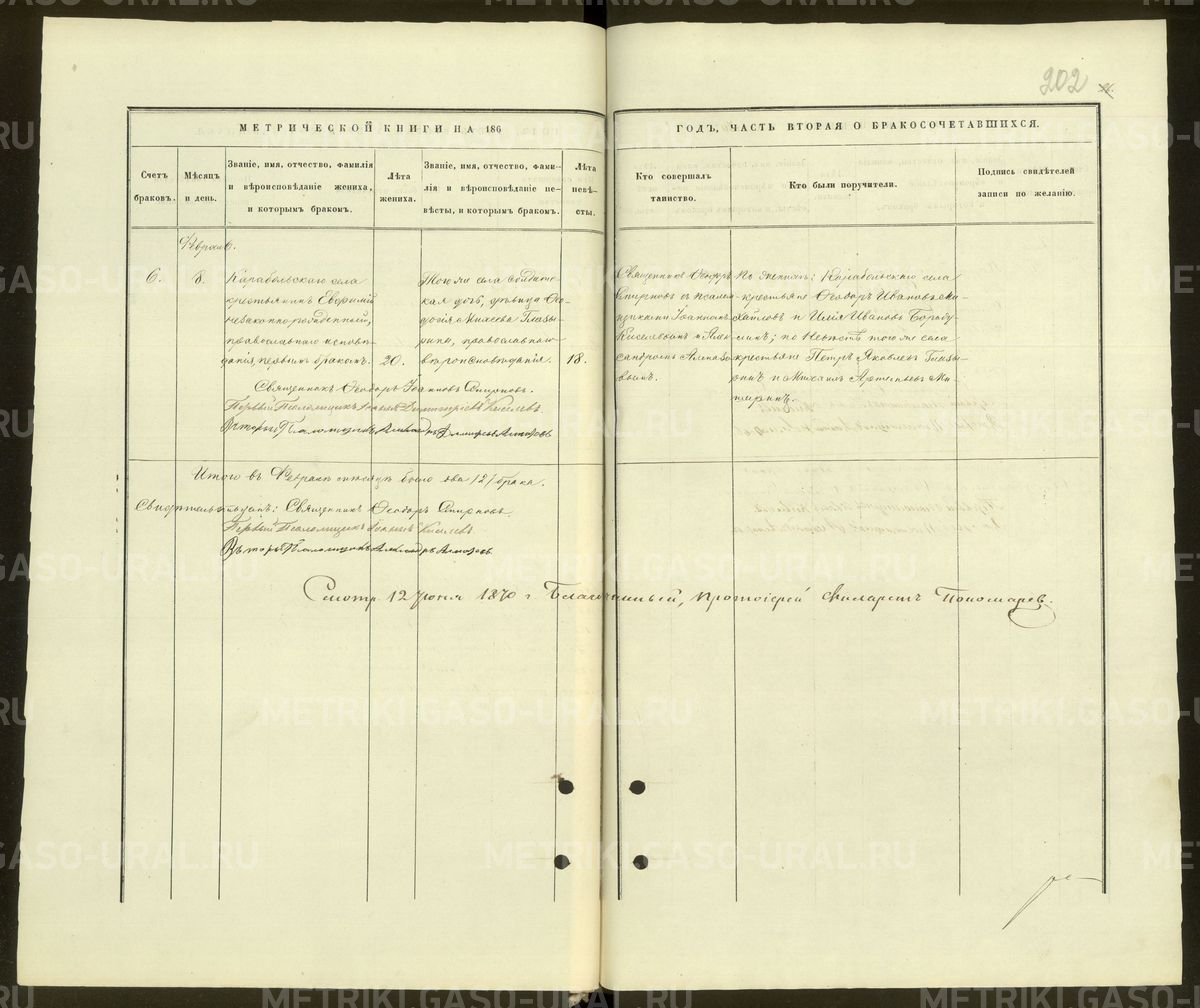 202
МЕТРИЧЕСКОЙ КНИГИ НА 186
ГОДЪ, ЧАСТЬ ВТОРАЯ О БРАКОСОЧЕТАВШИХСЯ.
Счетъ
браковъ.
Мѣсяцъ
и день.
Званіе, имя, отчество, фамилія
и вѣроисповѣданіе жениха,
и которымъ бракомъ.
Лѣта
жениха.
Званіе, имя, отчество, фами-
лія и вѣроисповѣданіе не-
вѣсты, и которымъ бракомъ.
Лѣта
невѣ-
сты.
Кто совершалъ
таинство.
Кто были поручители.
Подпись свидѣтелей
записи по желанію.
Февраль.
6.
8.
Карабольскаго села
крестьянинъ Евфимій
незаконнорожденный,
православнаго исповѣ-
данія, первымъ бракомъ.
20.
Того же села солдатс-
кая дочь, дѣвица Ѳео-
досія Михеева Глазы-
рина, православнаго
вѣроисповѣданія.
18.
Священникъ Ѳеодоръ
Смирновъ съ псалом-
щиками Іоанномъ
Киселевымъ и Алек-
сандромъ
По женихѣ: Карабольскаго села
крестьяне Ѳеодоръ Ивановъ Ми-
хайловъ и Илія Ивановъ
по невѣстѣ: того же села
крестьяне Петръ Яковлевъ Глазы-
ринъ и Михаилъ Артемьевъ
Священникъ Ѳеодоръ Іоанновъ Смирновъ.
Первый Псаломщикъ Іоаннъ Димитріевъ Киселевъ.
Вторый Псаломщикъ Александръ
Итого въ Февралѣ мѣсяцѣ было два /2/ брака.
Свидѣтельствуемъ: Священникъ Ѳеодоръ Смирновъ.
Первый Псаломщикъ Іоаннъ Киселевъ.
Вторый Псаломщикъ Александръ
Смотр. 12 Іюня 1870 г. Благочинный, Протоіерей Филаретъ Пономаревъ.
METRIKI.GASO-URAL.RU